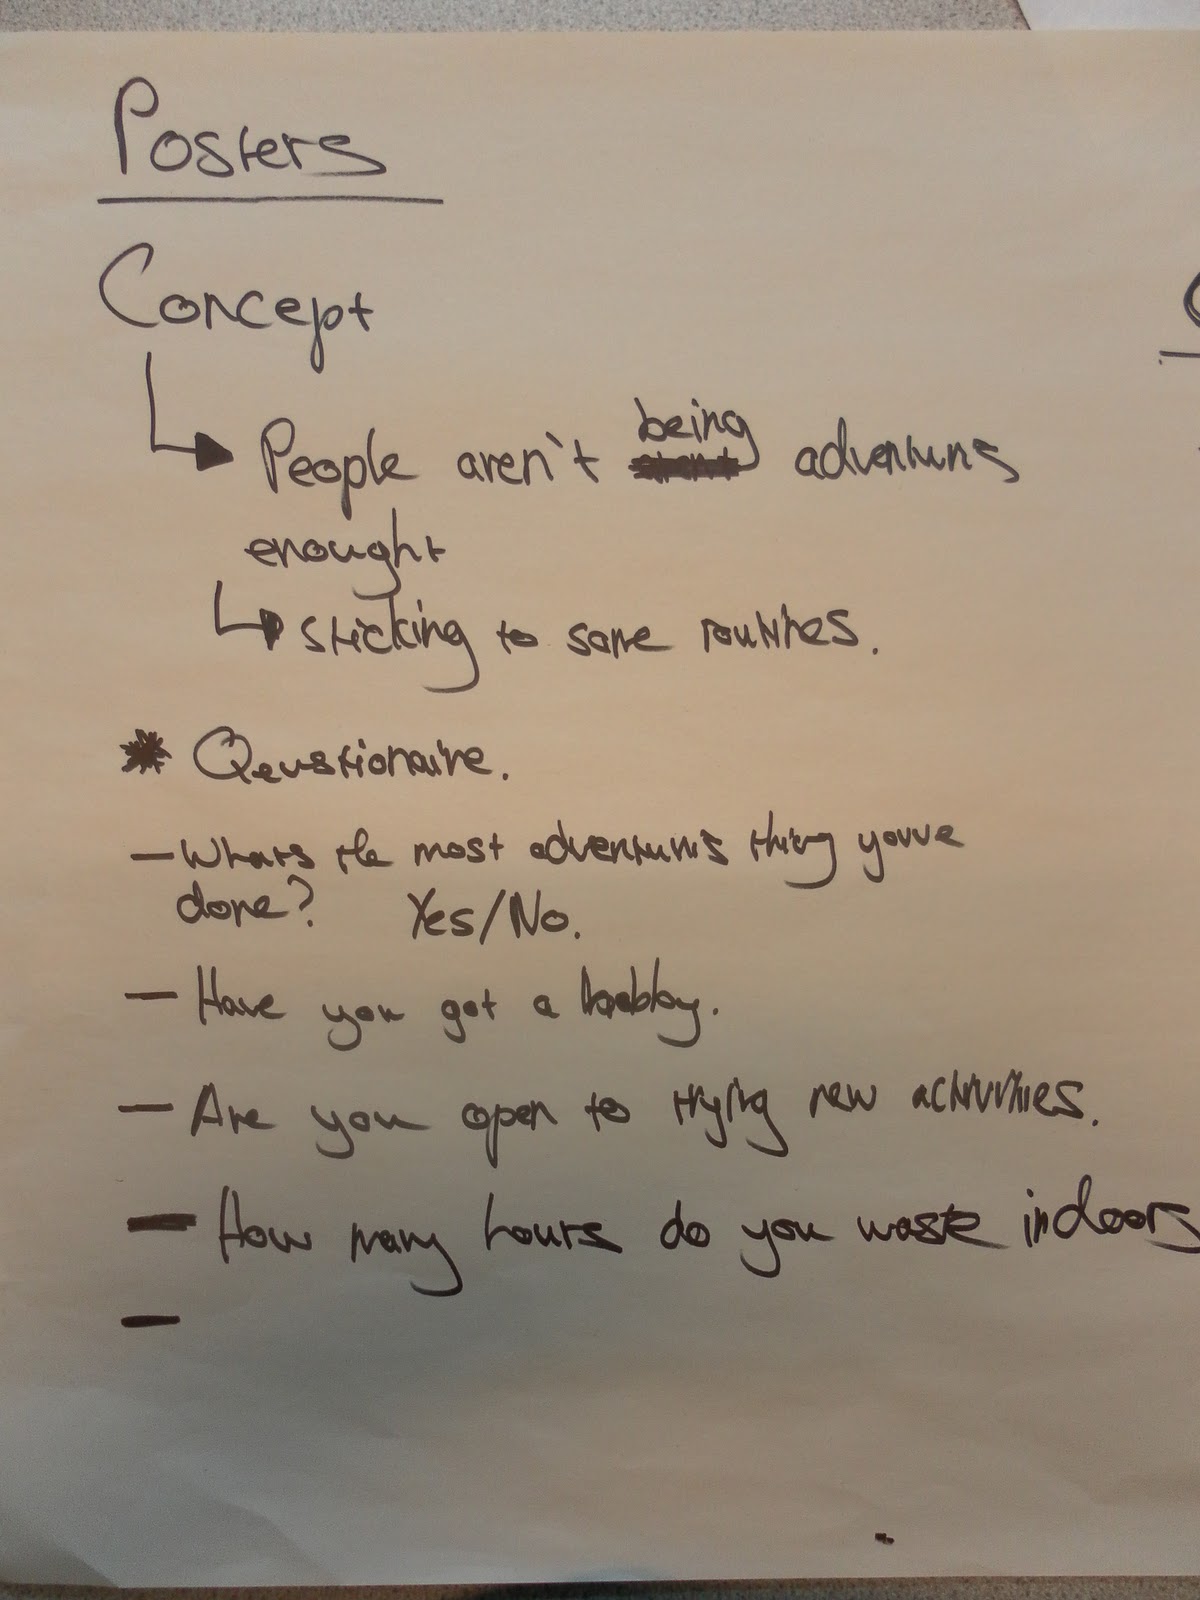 Posters
Concept
People aren't being adventurus
enought
sticking to same routines.
Qeustionaire.
- Whats the most adventurus thing youve
done? Yes/No.
- Have you got a hobby.
- Are you open to trying new activities.
- How many hours do you waste indoors
-